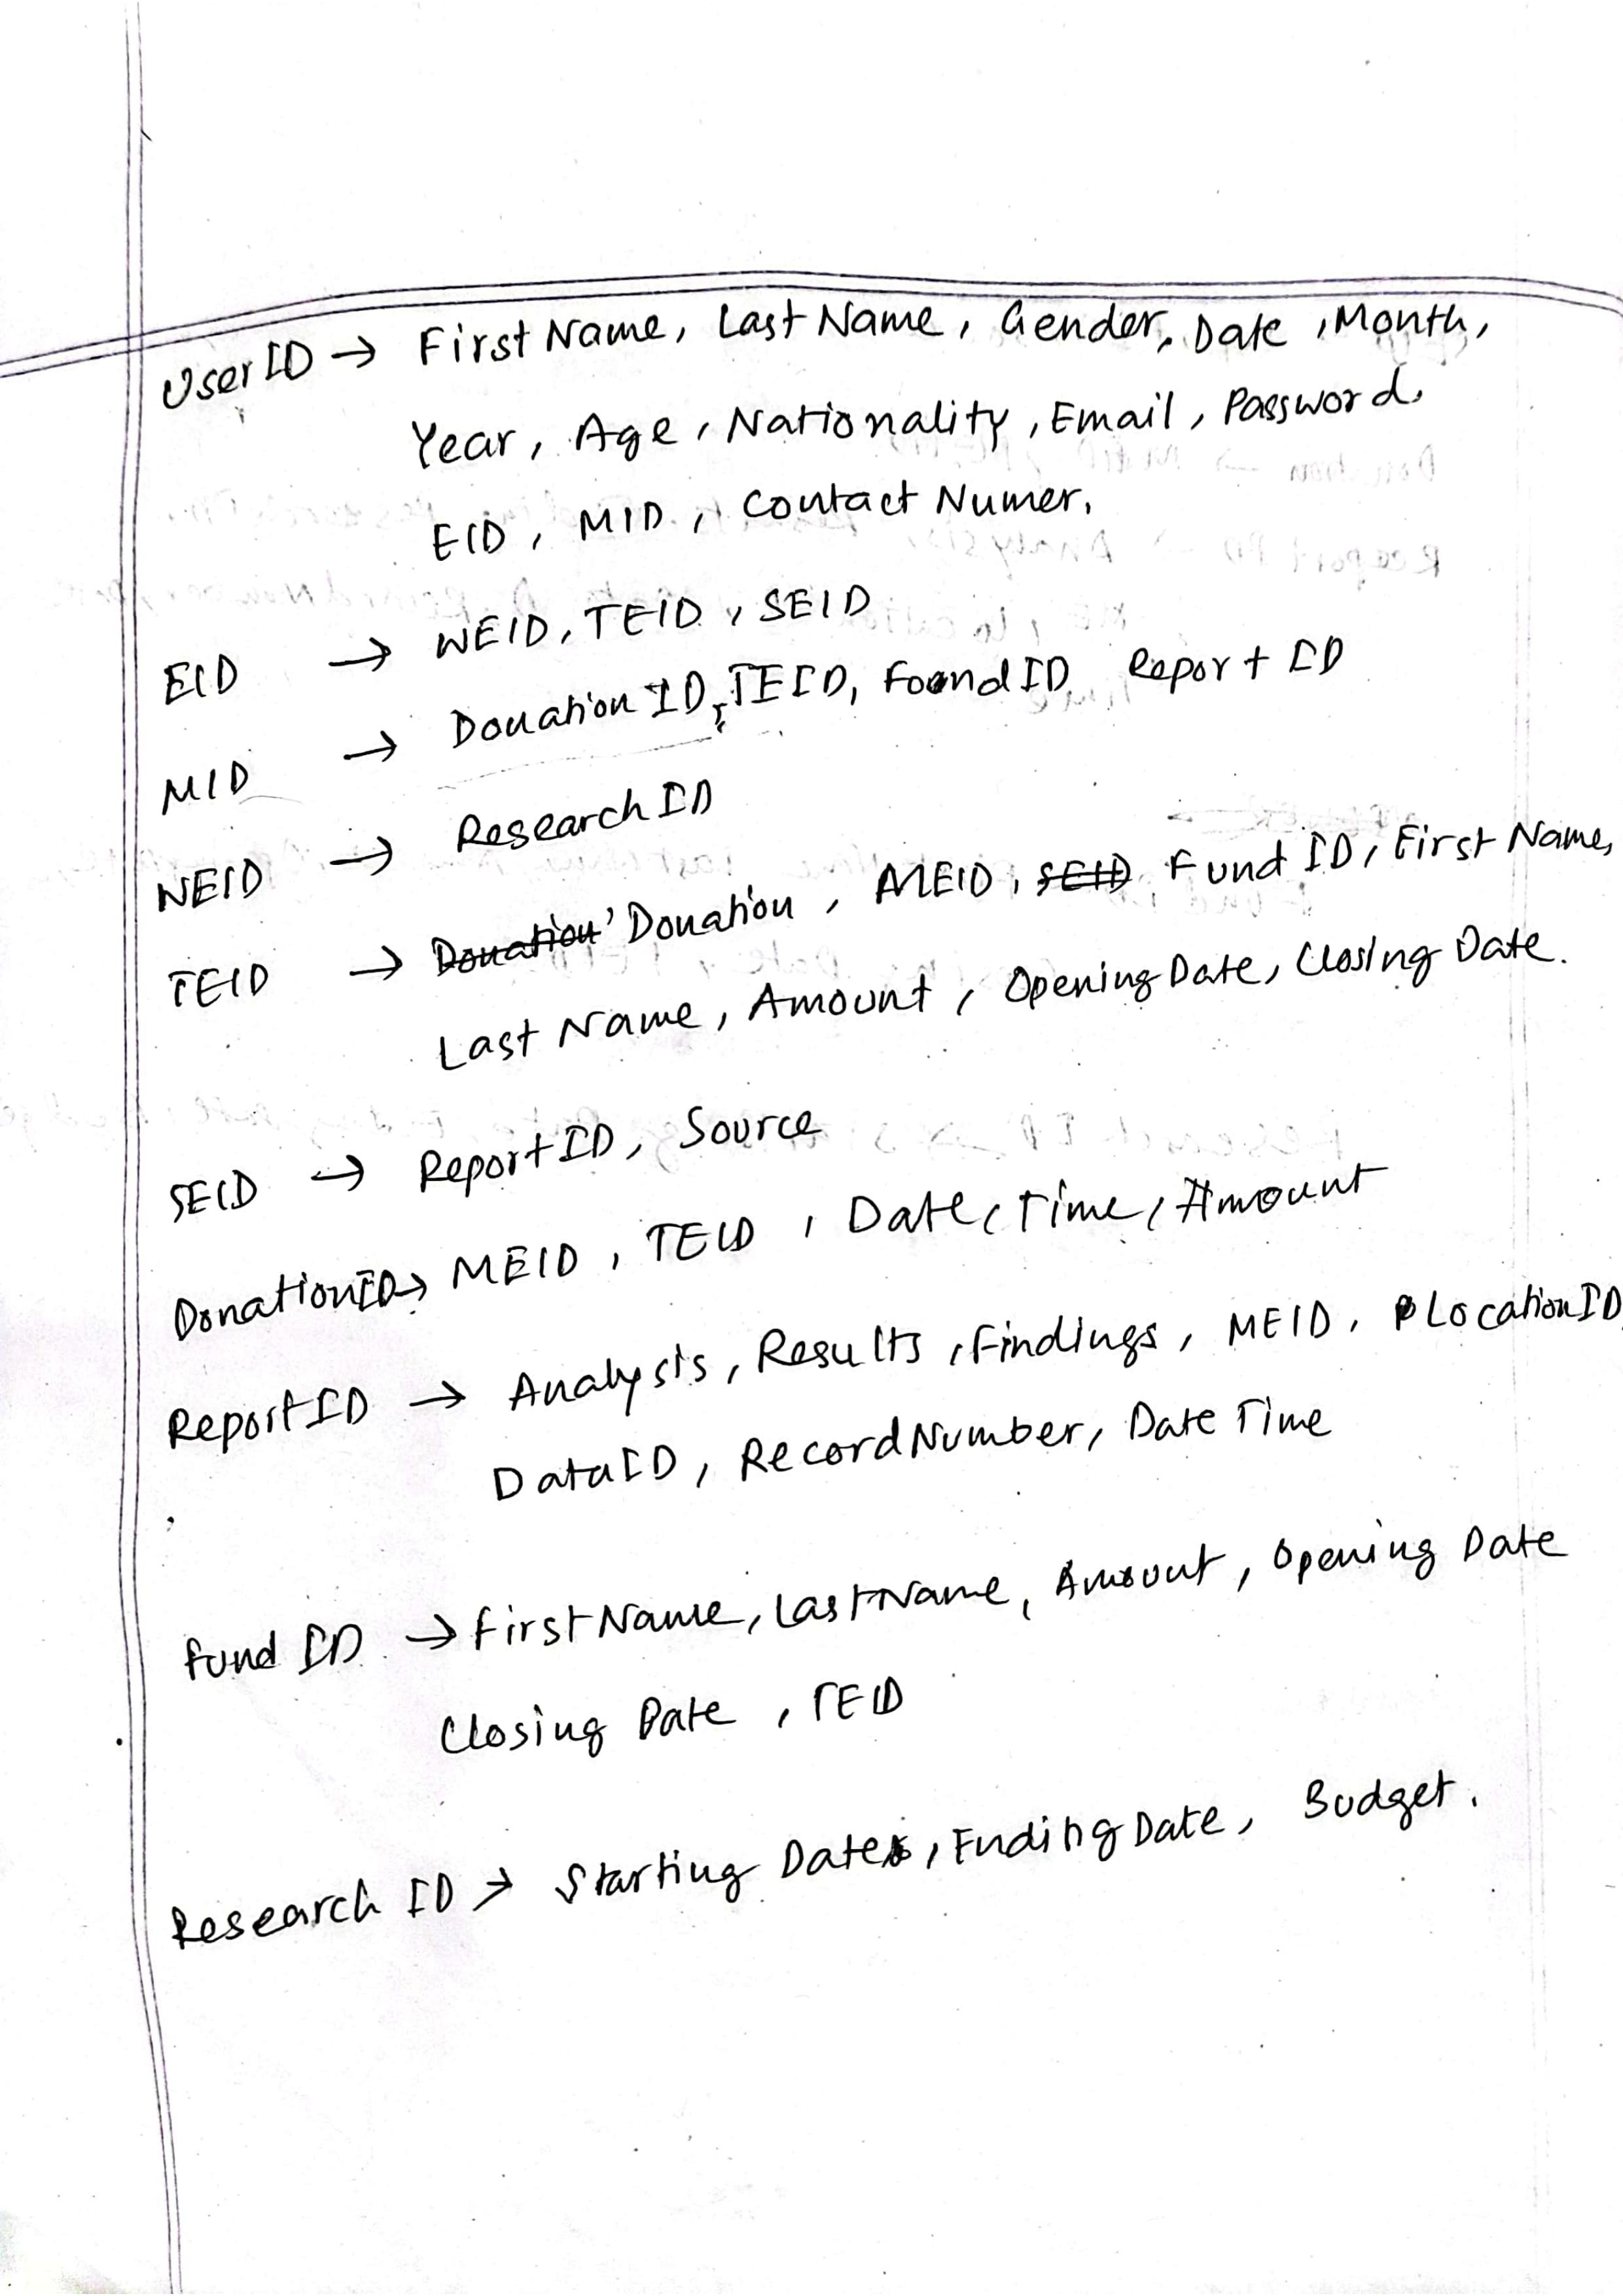 UserID → First Name, Last Name, Gender, Date, Month,
Year, Age, Nationality, Email, Password.
EID, MID, Contact Numer.
EID → WEID, TEID, SEID
MID → Donation ID, TEID, FoundID Report ID
WEID → Research ID
TEID → Donation Donation, MEID, SEID Fund ID, First Name,
Last Name, Amount, Opening Date, Closing Date.
SEID → ReportID, Source
DonationID → MEID, TEID, Date, Time, Amount
ReportID → Analysis, Results, Findings, MEID, LocationID
DataID, RecordNumber, Date Time
Fund ID → First Name, Last Name, Amount, Opening Date
Closing Date, TEID
Research ID → Starting Date, Ending Date, Budget.